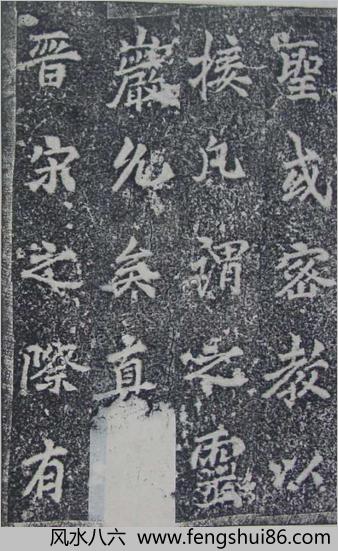 聖或密教以
接凡謂之靈
巖允矣真
晋宋之際有
风水八六 www.fengshui86.com